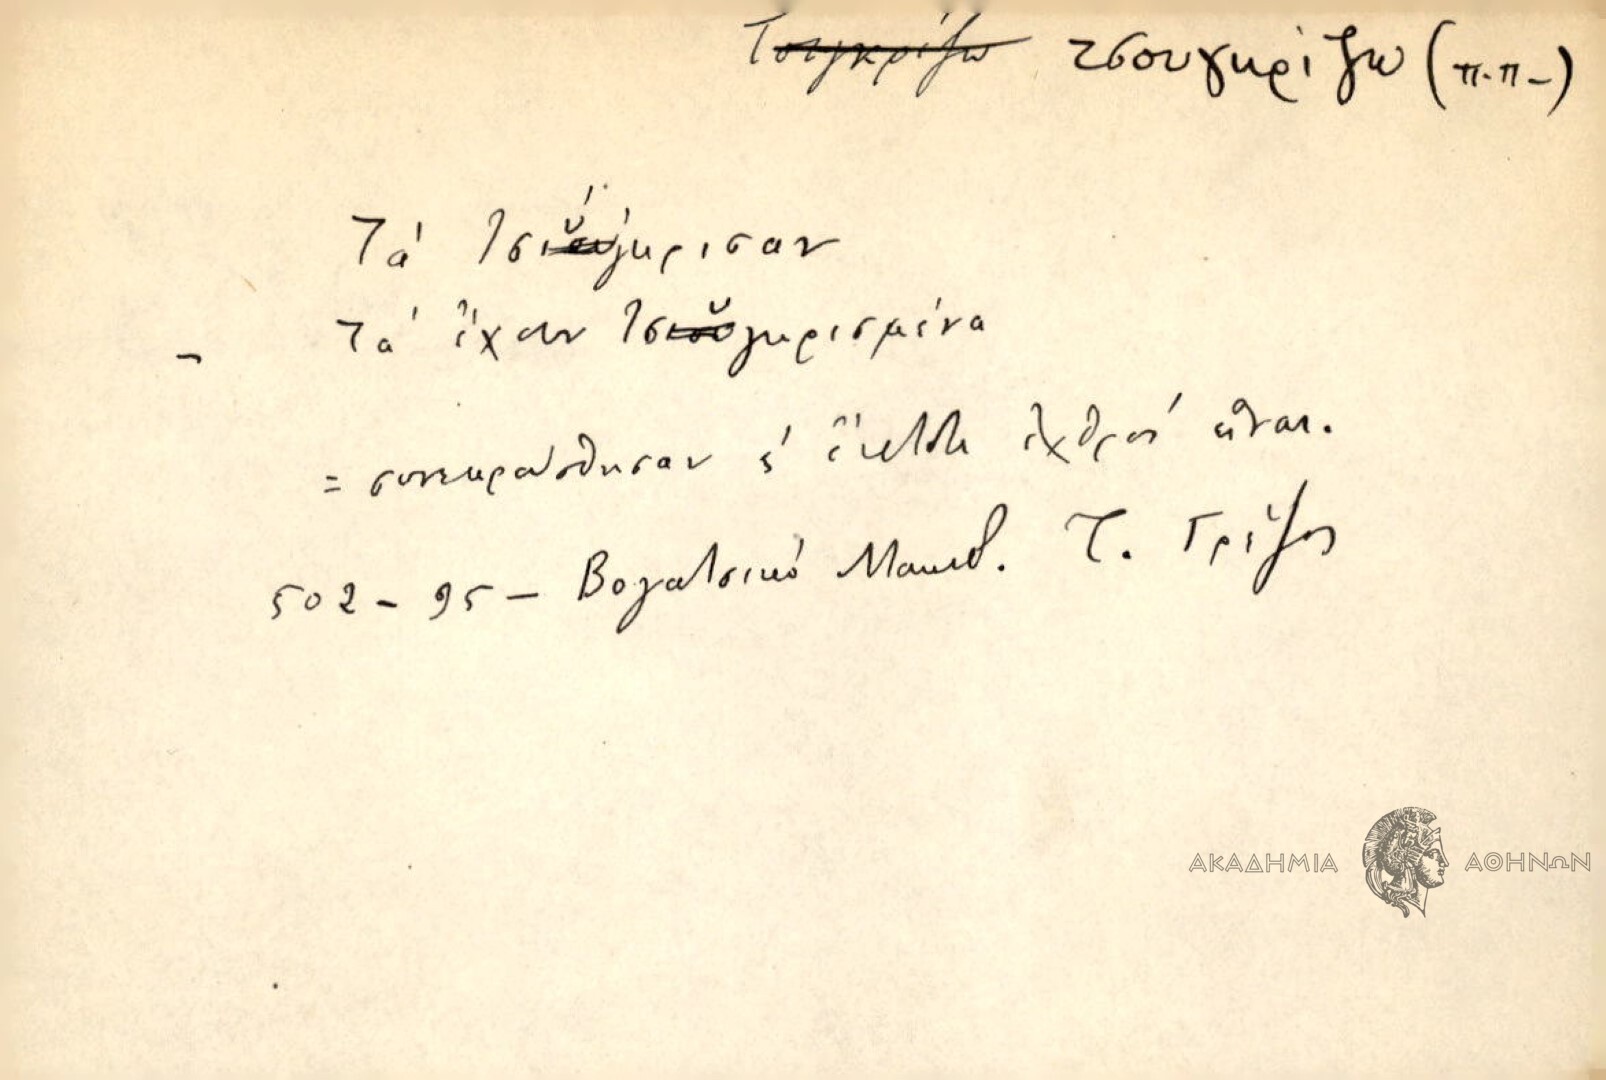 Τσιγκρίζω τσουγκρίζω (π.π-)
Τά Τσιού́γκρισαν
- Τά ἔχουν Τσιουγκρισμένα
= συνεκρούσθησαν ἐχθροί εἶναι.
502 - 95 - Βογατσικό Μακεδ. Τ. Γρίζος
ΑΚΑΔΗΜΙΑ ΑΘΗΝΩΝ